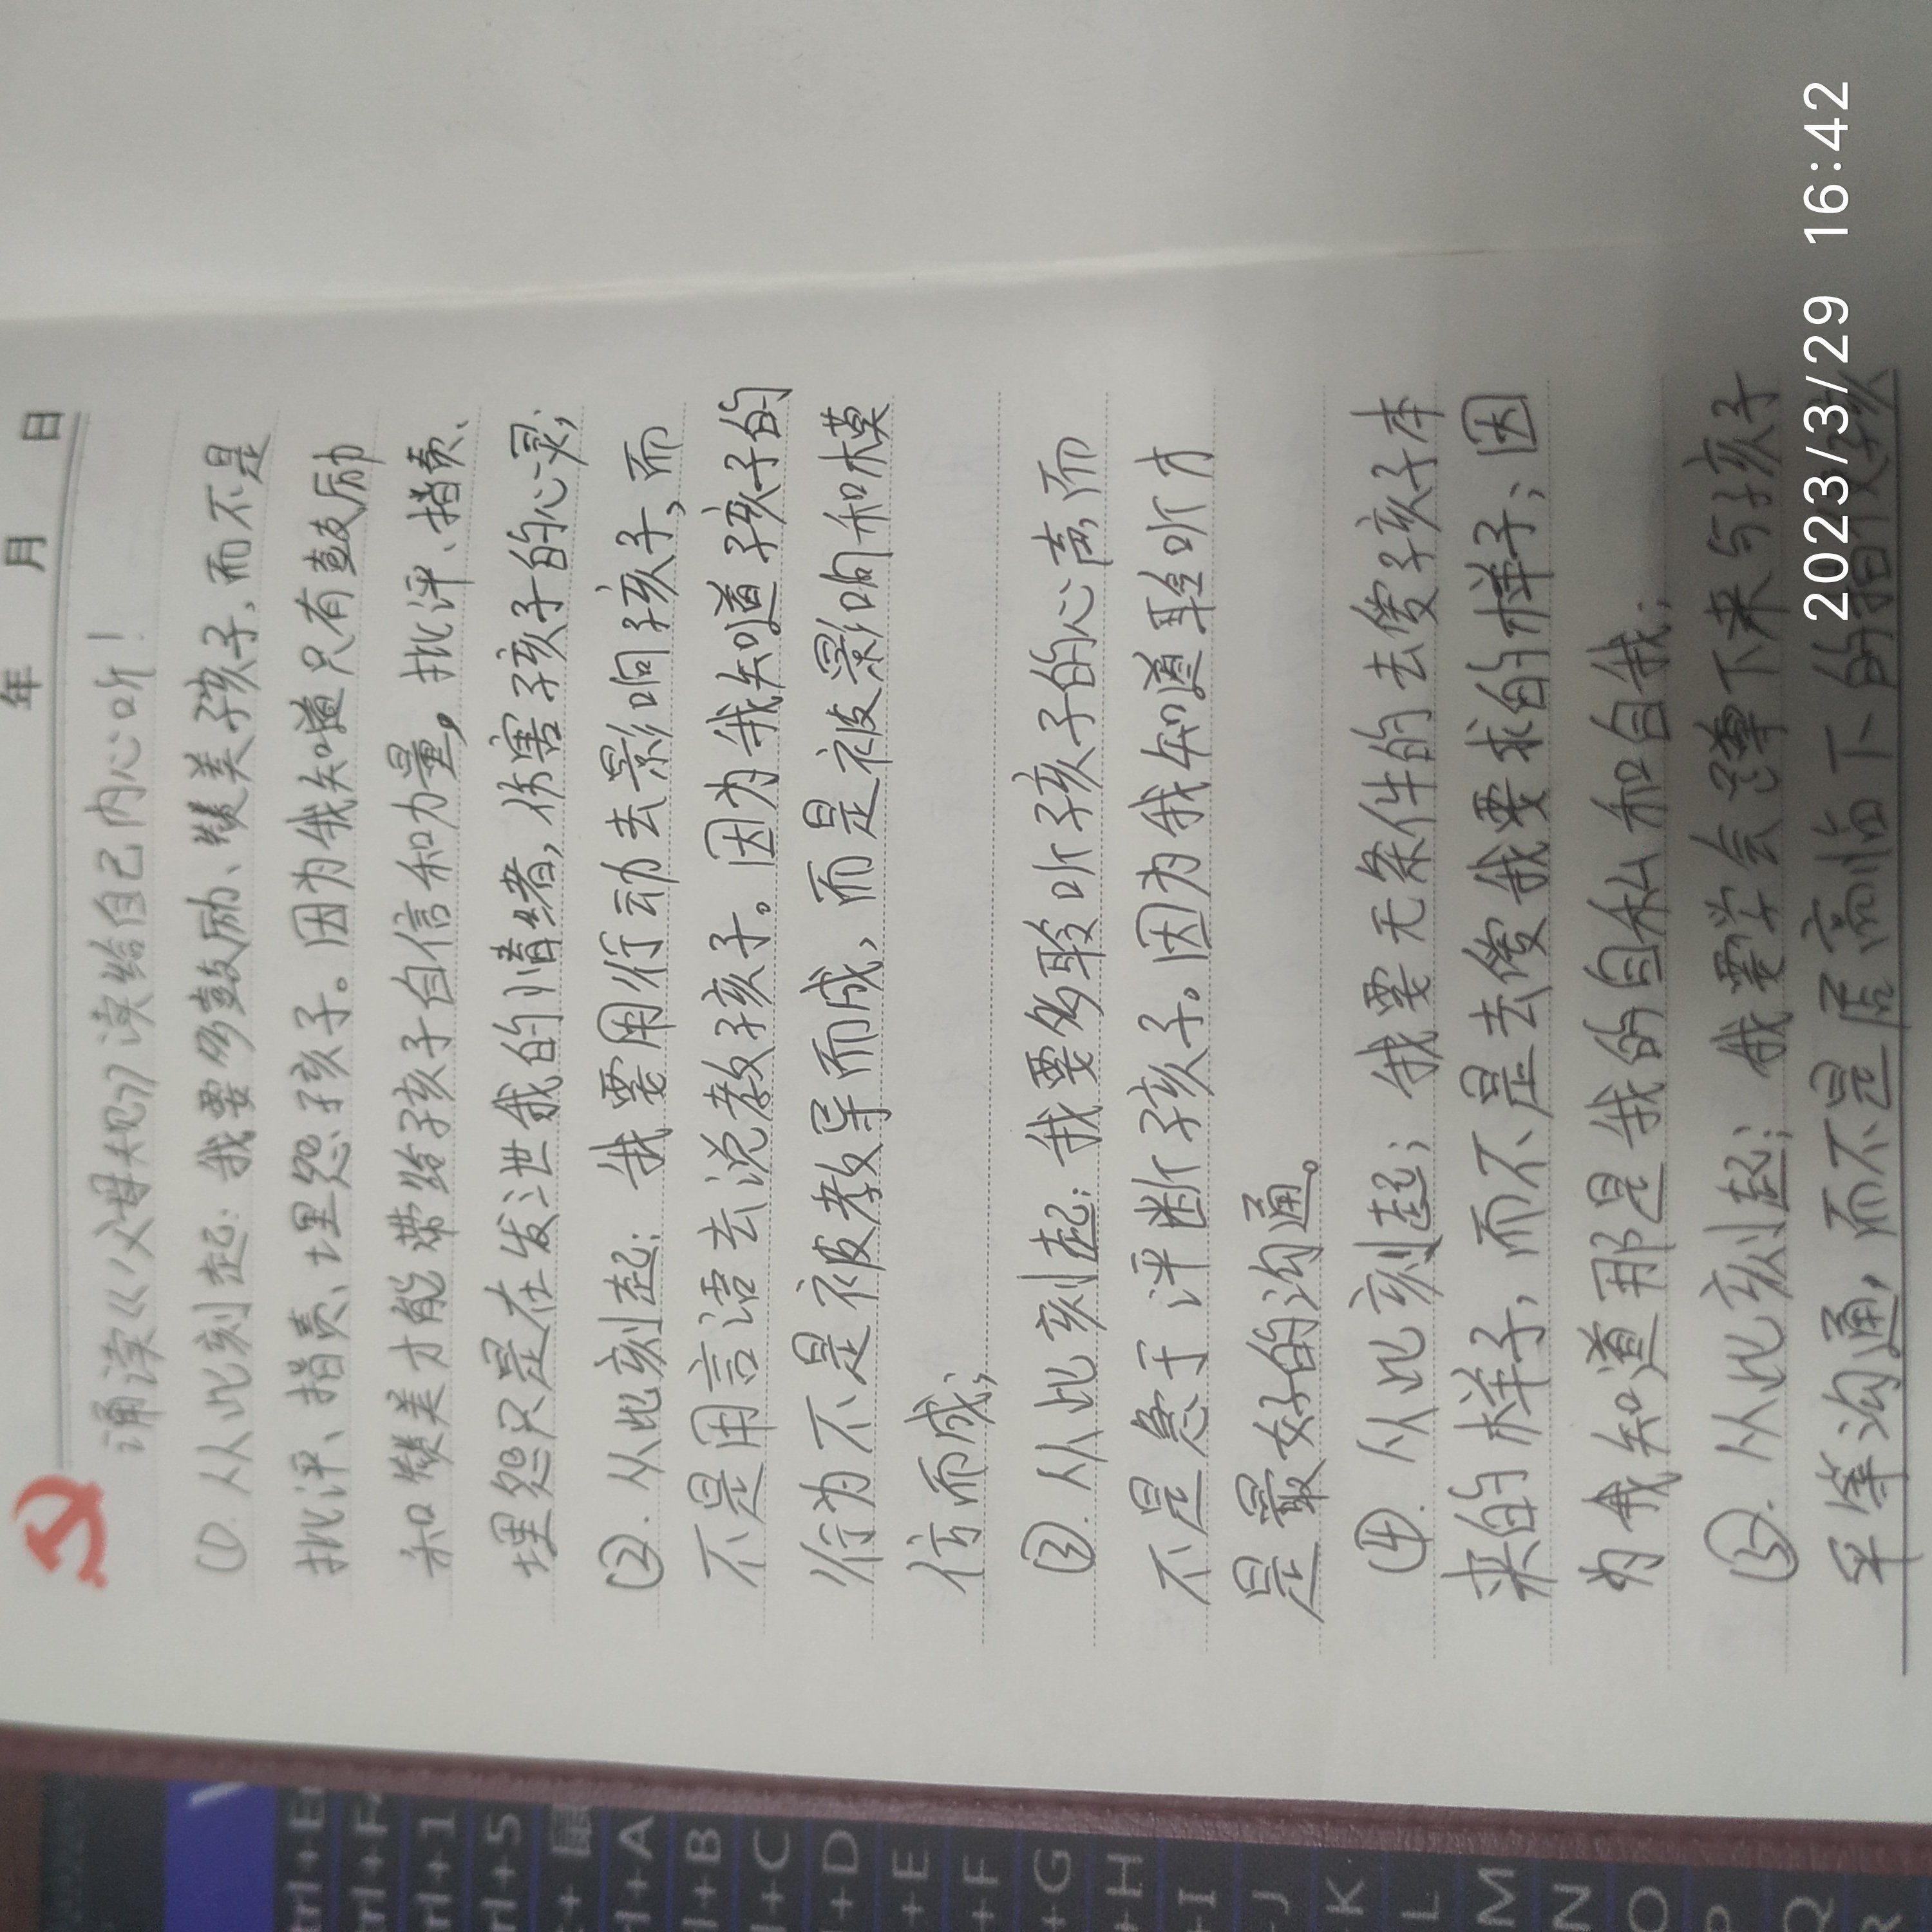 年 月 日
诵读《父母规》读给自己内心听！
①.从此刻起：我要多鼓励、赞美孩子，而不是
批评、指责、埋怨孩子。因为我知道只有鼓励
和赞美才能带给孩子自信和力量。批评、指责、
埋怨只是在发泄我的情绪，伤害孩子的心灵；
②.从此刻起：我要用行动去影响孩子，而
不是用言语去说教孩子。因为我知道孩子的
行为不是被教导而成，而是被影响和模
仿而成；
③.从此刻起：我要多聆听孩子的心声而
不是急于评断孩子。因为我知道聆听才
是最好的沟通。
④.从此刻起；我要无条件的去爱孩子本
来的样子，而不是去爱我要求的样子；因
为我知道那是我的自私和自我；
⑤.从此刻起；我要学会蹲下来与孩子
平等沟通，而不是居高临下的指
2023/3/29 16:42
trl+F
trl+1
rl+5
l+A
+B
+C
+D
+E
+F
+G
+H
+I
J
K
L
M
N
O
P
Q
R